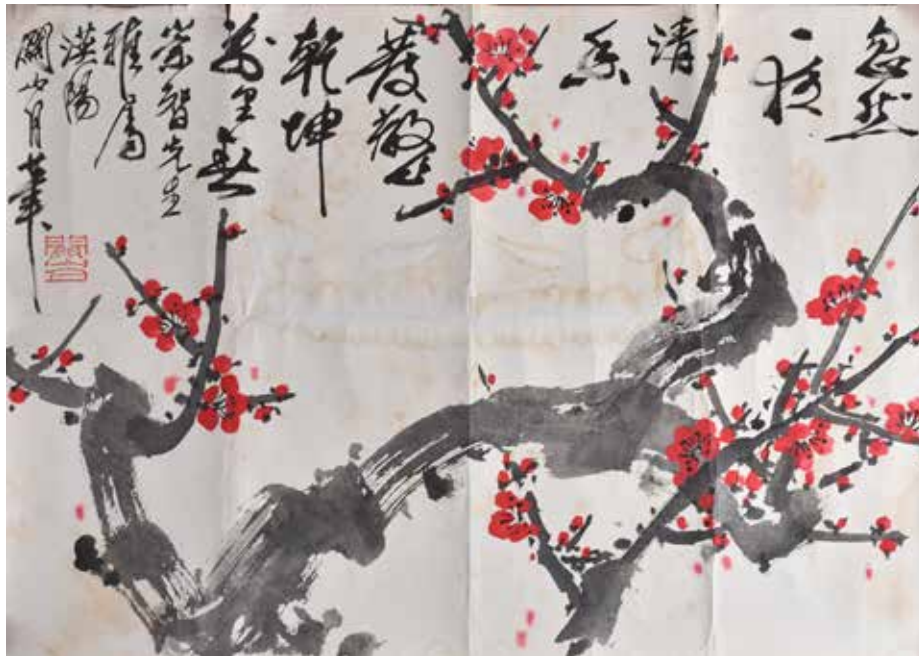 忽然
一夜
清
香
發散作
乾坤
萬里春
智先生
雅屬
漢陽
關山月筆